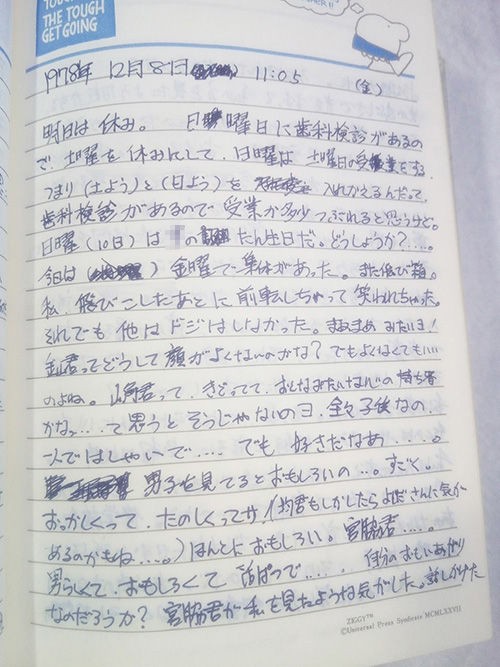 THE TOUGH
GET GOING
1978年 12月8日 11:05 (金)
明日は休み。 日曜日に歯科検診があるの
で、土曜を休みにして、日曜は土曜日の授業をする。
つまり(土よう)と(日よう)を 入れかえるんだって。
歯科検診があるので受業が多少つぶれると思うけど。
日曜(10日)は の たん生日だ。どうしようか?....。
今日は ) 金曜で集体があった。また飛び箱。
私、飛びこしたあとに前転しちゃって笑われちゃった。
それでも他はドジはしなかった。まあまあみたいよ!
金山君ってどうして顔がよくないのかな?でもよくなくてもいい
のよね。山角君って、きどってて、おとなみたいなかんじの持ち者
かなっ...て思うとそうじゃないのヨ、全々子後なの、
一人ではしゃいで.... でも 好きだなあ....。
男子を見てるとおもしろいの...。すごく。
おっかしくって、たのしくってサ、(均君もしかしたらよださんに気が
あるのかもね...。)ほんとにおもしろい。宮脇君....。
男らしくて、おもしろくて 活ぱつで.... 自分のおもいあがり
なのだろうか?宮脇君が私を見たような気がした。話しかけた
ZIGGY™
©Universal Press Syndicate MCMLXXVII